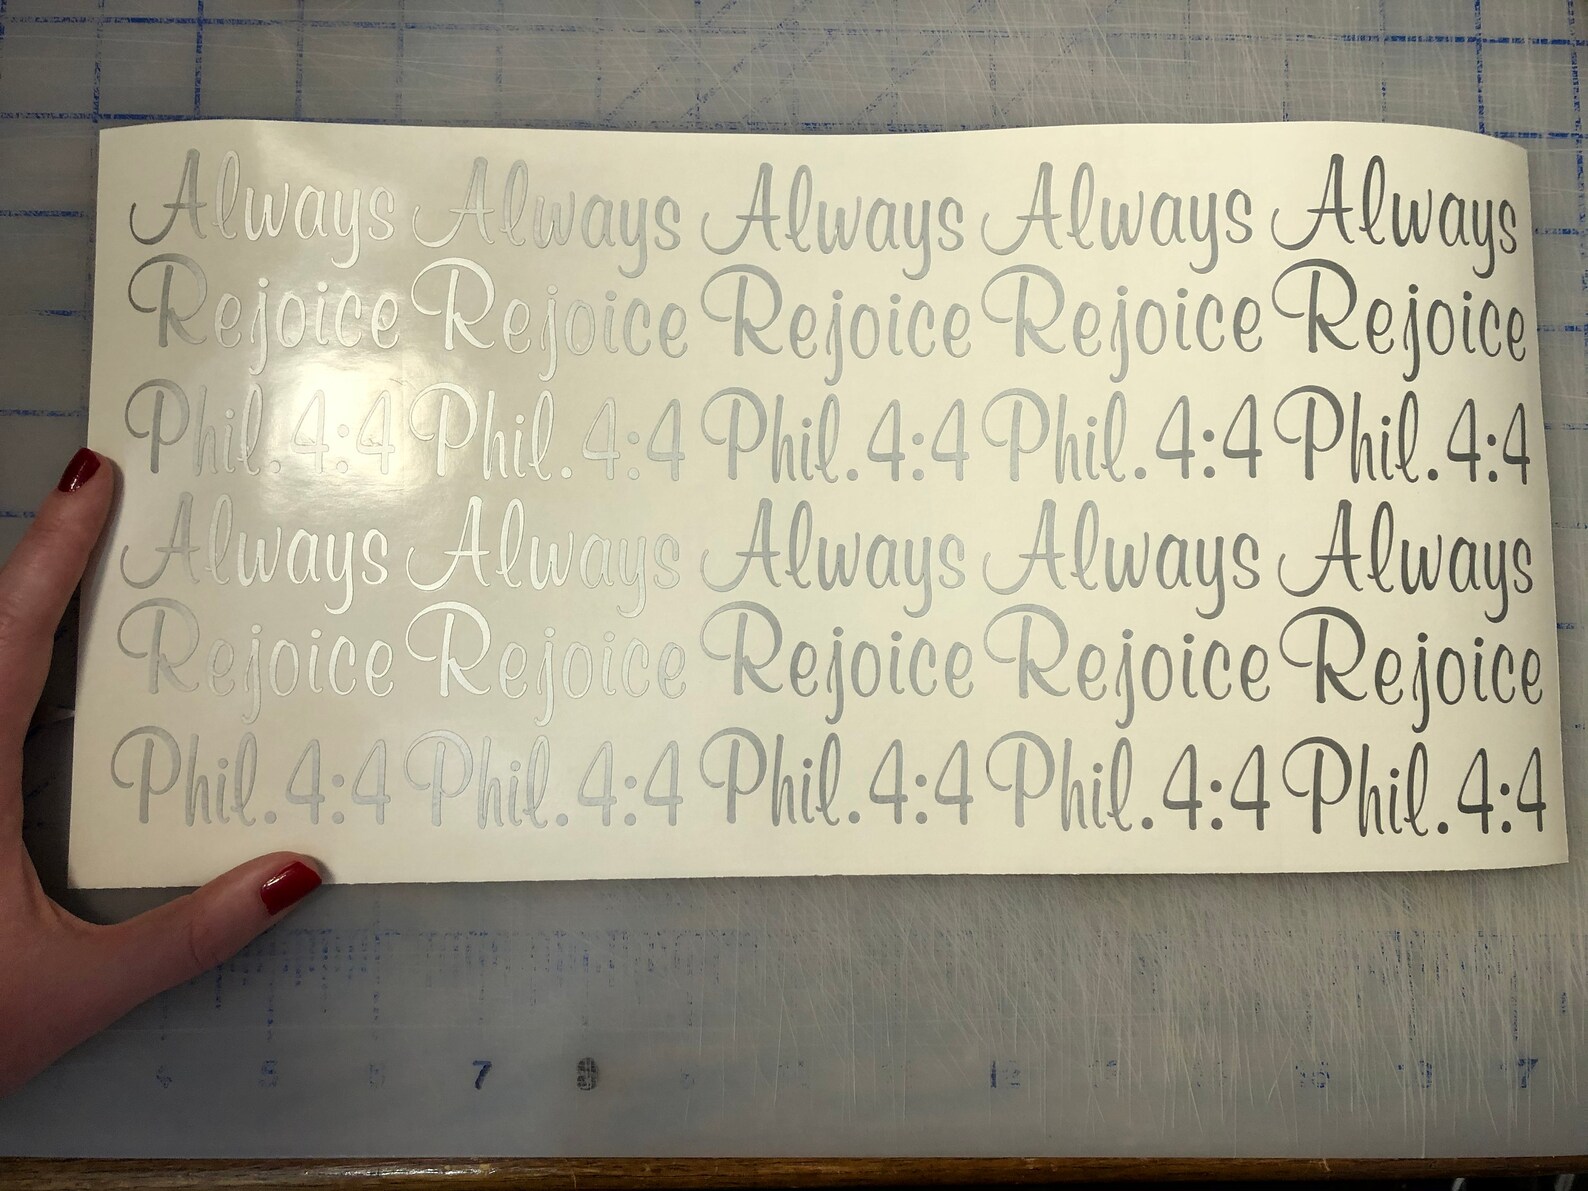 Always Always Always Always Always
Rejoice Rejoice Rejoice Rejoice Rejoice
Phil. 4:4 Phil. 4:4 Phil. 4:4 Phil. 4:4 Phil. 4:4
Always Always Always Always Always
Rejoice Rejoice Rejoice Rejoice Rejoice
Phil. 4:4 Phil. 4:4 Phil. 4:4 Phil. 4:4 Phil. 4:4
7 8 12 17